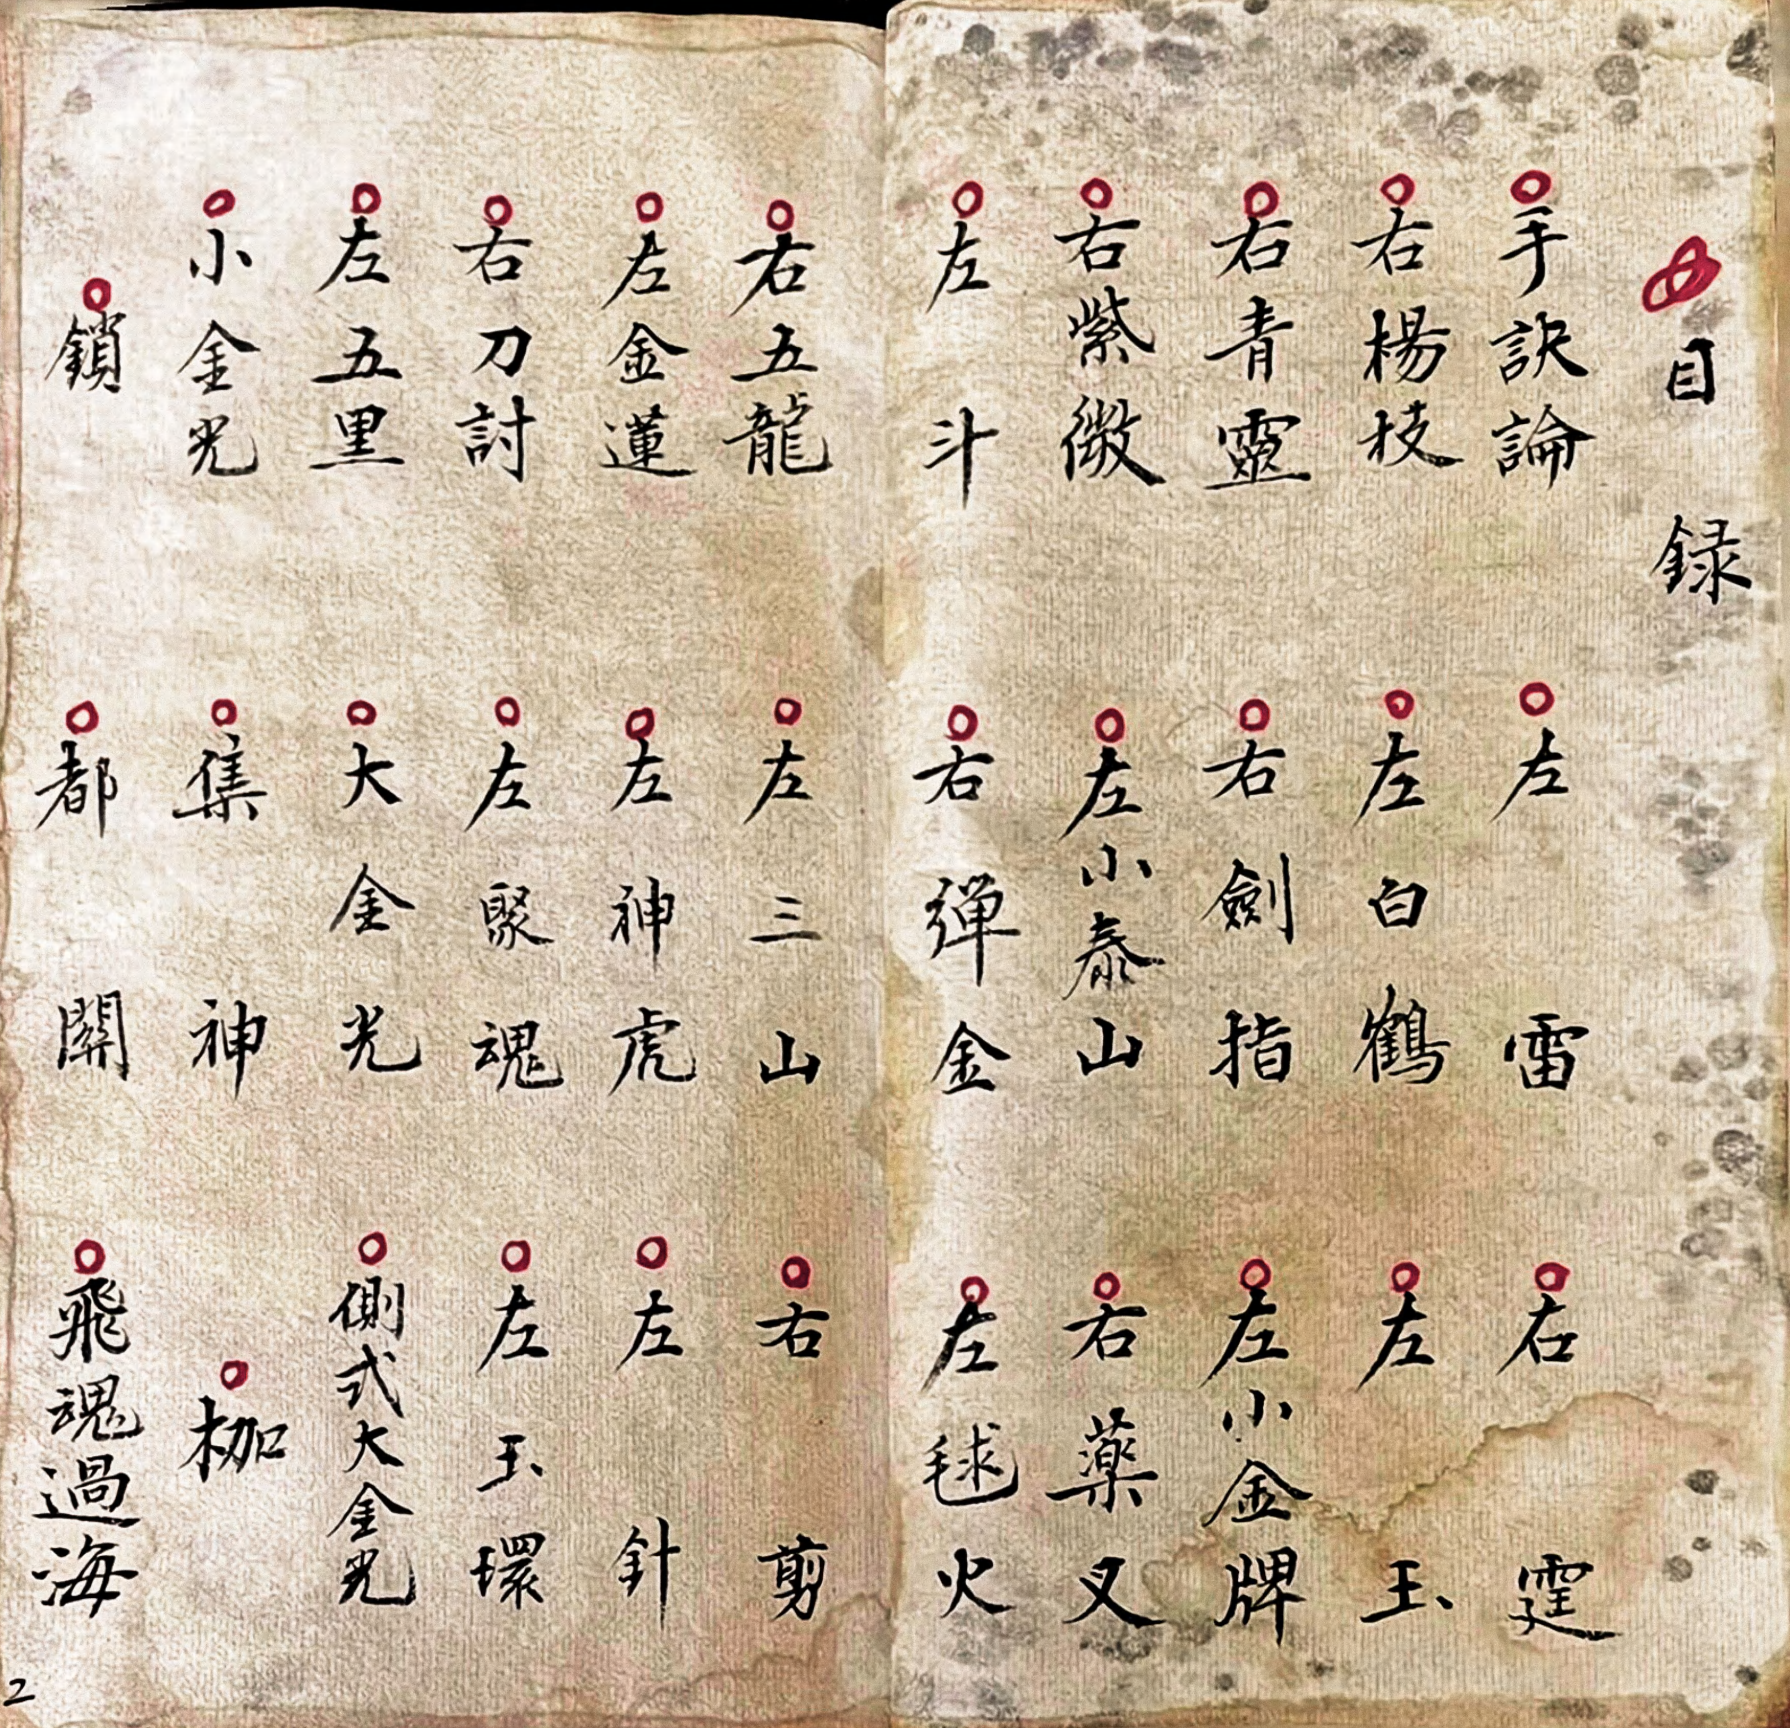 目録
手訣論
左雷
右霆
右楊枝
左白鶴
左玉
右青靈
右劍指
左小金牌
右紫微
左小泰山
右藥叉
左斗
右彈金
左毬火
右五龍
左三山
右剪
左金蓮
左神虎
左針
右刀討
左聚魂
左玉環
左五黑
大金光
側式大金光
小金光
集神
枷
鎖
都關
飛魂過海
2